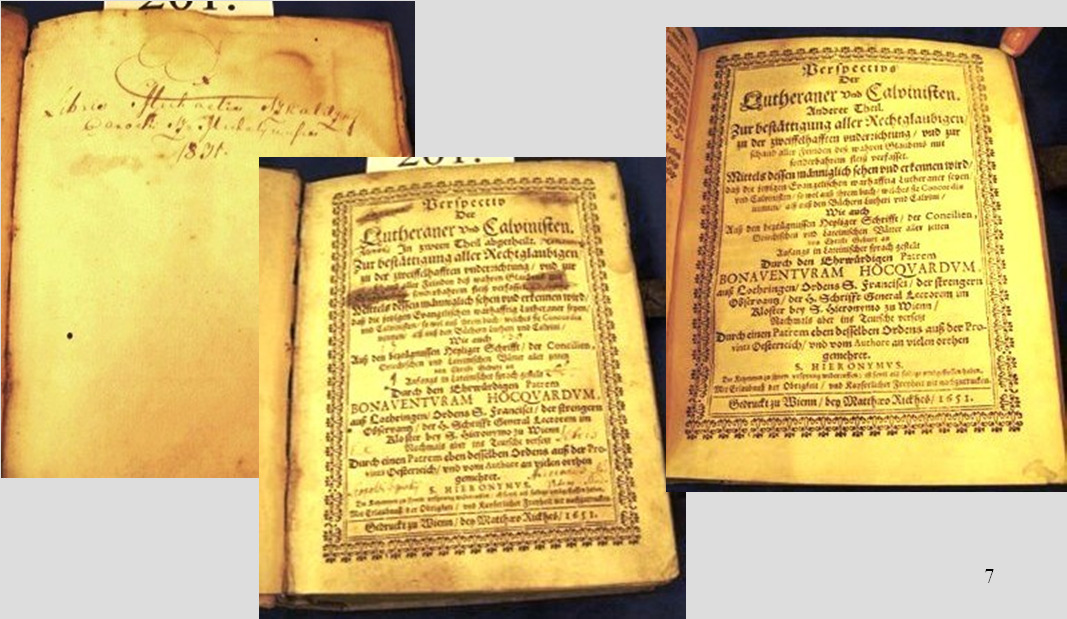 201.
Libris Michaelis
1831.
201.
Perspectiv
Der
Lutheraner vnd Calvinisten.
In zween Theil abgetheilt.
Zur bestättigung aller Rechtglaubigen/
zu der zweiffelhafften vnderrichtung / vnd zur
aller Feinden deß wahren Glaubens
sonderbahrem fleiß verfasset.
Mittels dessen männiglich sehen vnd erkennen wird/
daß die jetzigen Evangelischen warhafftig Lutheraner seyen/
vnd Calvinisten / so wol auß ihrem buch / welches sie Concordiam
nennen / als auß den Büchern Lutheri vnd Calvini /
Wie auch
Auß den bezeügnussen Heyliger Schrifft / der Concilien,
Griechischen vnd Lateinischen Vätter aller zeiten
von Christi Geburt an
Anfangs in Lateinischer sprach gestelt
Durch den Ehrwürdigen Patrem
BONAVENTVRAM HOCQVARDVM,
auß Lothringen / Ordens S. Francisci / der strengern
Observantz / der H. Schrifft General Lectorem im
Kloster bey S. Hieronymo zu Wienn /
Nachmals aber ins Teutsche versetzt
Durch einen Patrem eben desselben Ordens auß der Pro-
vintz Oesterreich / vnd vom Authore an vielen orthen
gemehret.
S. HIERONYMVS.
Die Ketzereyen zu ihrem vrsprung widerruffen / ist sovil als selbige vmbgestossen haben.
Mit Erlaubnuß der Obrigkeit / vnd Kayserlicher Freyheit nit nachzutrucken.
Gedruckt zu Wienn / bey Matthæo Rickhes / 1651.
Perspectivs
Der
Lutheraner vnd Calvinisten.
Anderer Theil.
Zur bestättigung aller Rechtglaubigen/
zu der zweiffelhafften vnderrichtung / vnd zur
schand aller Feinden deß wahren Glaubens mit
sonderbahrem fleiß verfasset.
Mittels dessen männiglich sehen vnd erkennen wird/
daß die jetzigen Evangelischen warhafftig Lutheraner seyen
vnd Calvinisten / so wol auß ihrem buch / welches sie Concordiam
nennen / als auß den Büchern Lutheri vnd Calvini /
Wie auch
Auß den bezeügnussen Heyliger Schrifft / der Concilien,
Griechischen vnd Lateinischen Vätter aller zeiten
von Christi Geburt an
Anfangs in Lateinischer sprach gestelt
Durch den Ehrwürdigen Patrem
BONAVENTVRAM HOCQVARDVM.
auß Lothringen / Ordens S. Francisci / der strengern
Observantz / der H. Schrifft General Lectorem im
Kloster bey S. Hieronymo zu Wienn /
Nachmals aber ins Teutsche versetzt
Durch einen Patrem eben desselben Ordens auß der Pro-
vintz Oesterreich / vnd vom Authore an vielen orthen
gemehret.
S. HIERONYMVS.
Die Ketzereyen zu ihrem vrsprung widerruffen / ist sovil als selbige vmbgestossen haben.
Mit Erlaubnuß der Obrigkeit / vnd Kayserlicher Freyheit nit nachzutrucken.
Gedruckt zu Wienn / bey Matthæo Rickhes / 1651.
7